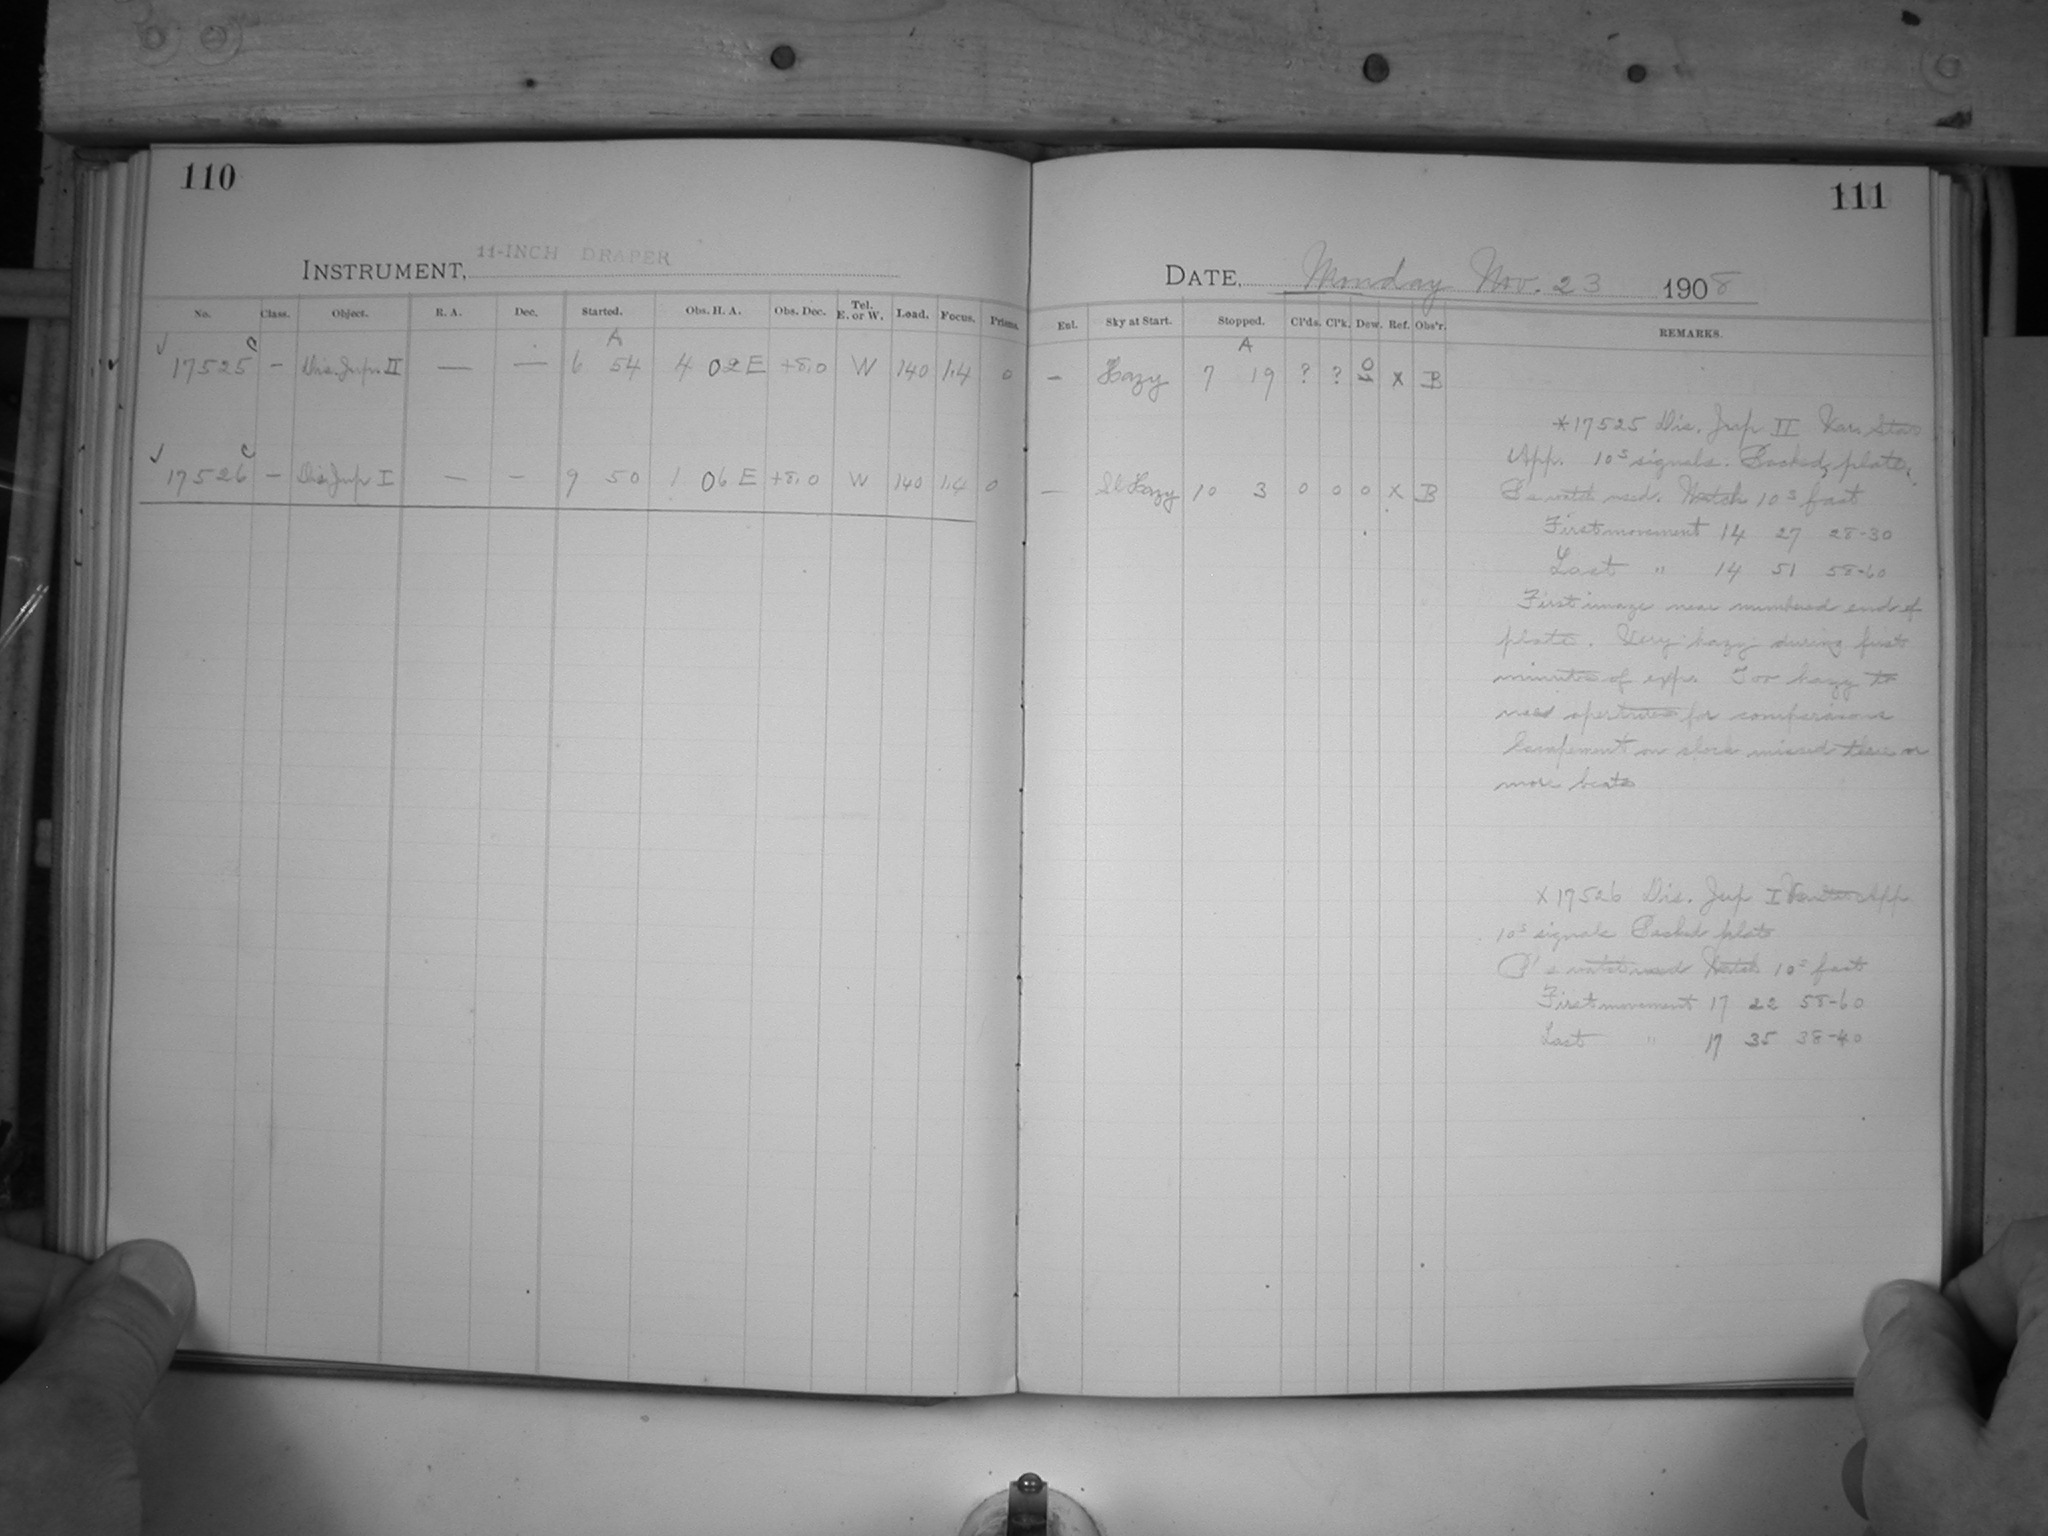 110
INSTRUMENT, 11-INCH DRAPER
No. Class. Object. R. A. Dec. Started. Obs. H. A. Obs. Dec. Tel. E. or W. Load. Focus. Prisms.
A
✓ 17525 C – Dis. Jup. II — — 6 54 4 02 E +8.0 W 140 1.4 0
✓ 17526 C – Dis. Jup I — – 9 50 1 06 E +8.0 W 140 1.4 0
111
DATE, Monday Nov. 23 1908
Ent. Sky at Start. Stopped. Cl'ds. Cl'k. Dew. Ref. Obs'r. REMARKS.
A
– Hazy 7 19 ? ? 0 X B
— Sl Hazy 10 3 0 0 0 X B
*17525 Dis. Jup II Var. Star
App. 10s signals. Backed plate.
watch used. Watch 10s fast
First movement 14 27 28-30
Last " 14 51 58-60
First image near numbered end of
plate. Very hazy during first
minutes of exp. Too hazy to
need apertures for comparisons
Escapement on clock missed three or
more beats
X 17526 Dis. Jup I App
10s signals Backed plate
P's watch used Watch 10s fast
First movement 17 22 58-60
Last " 17 35 38-40